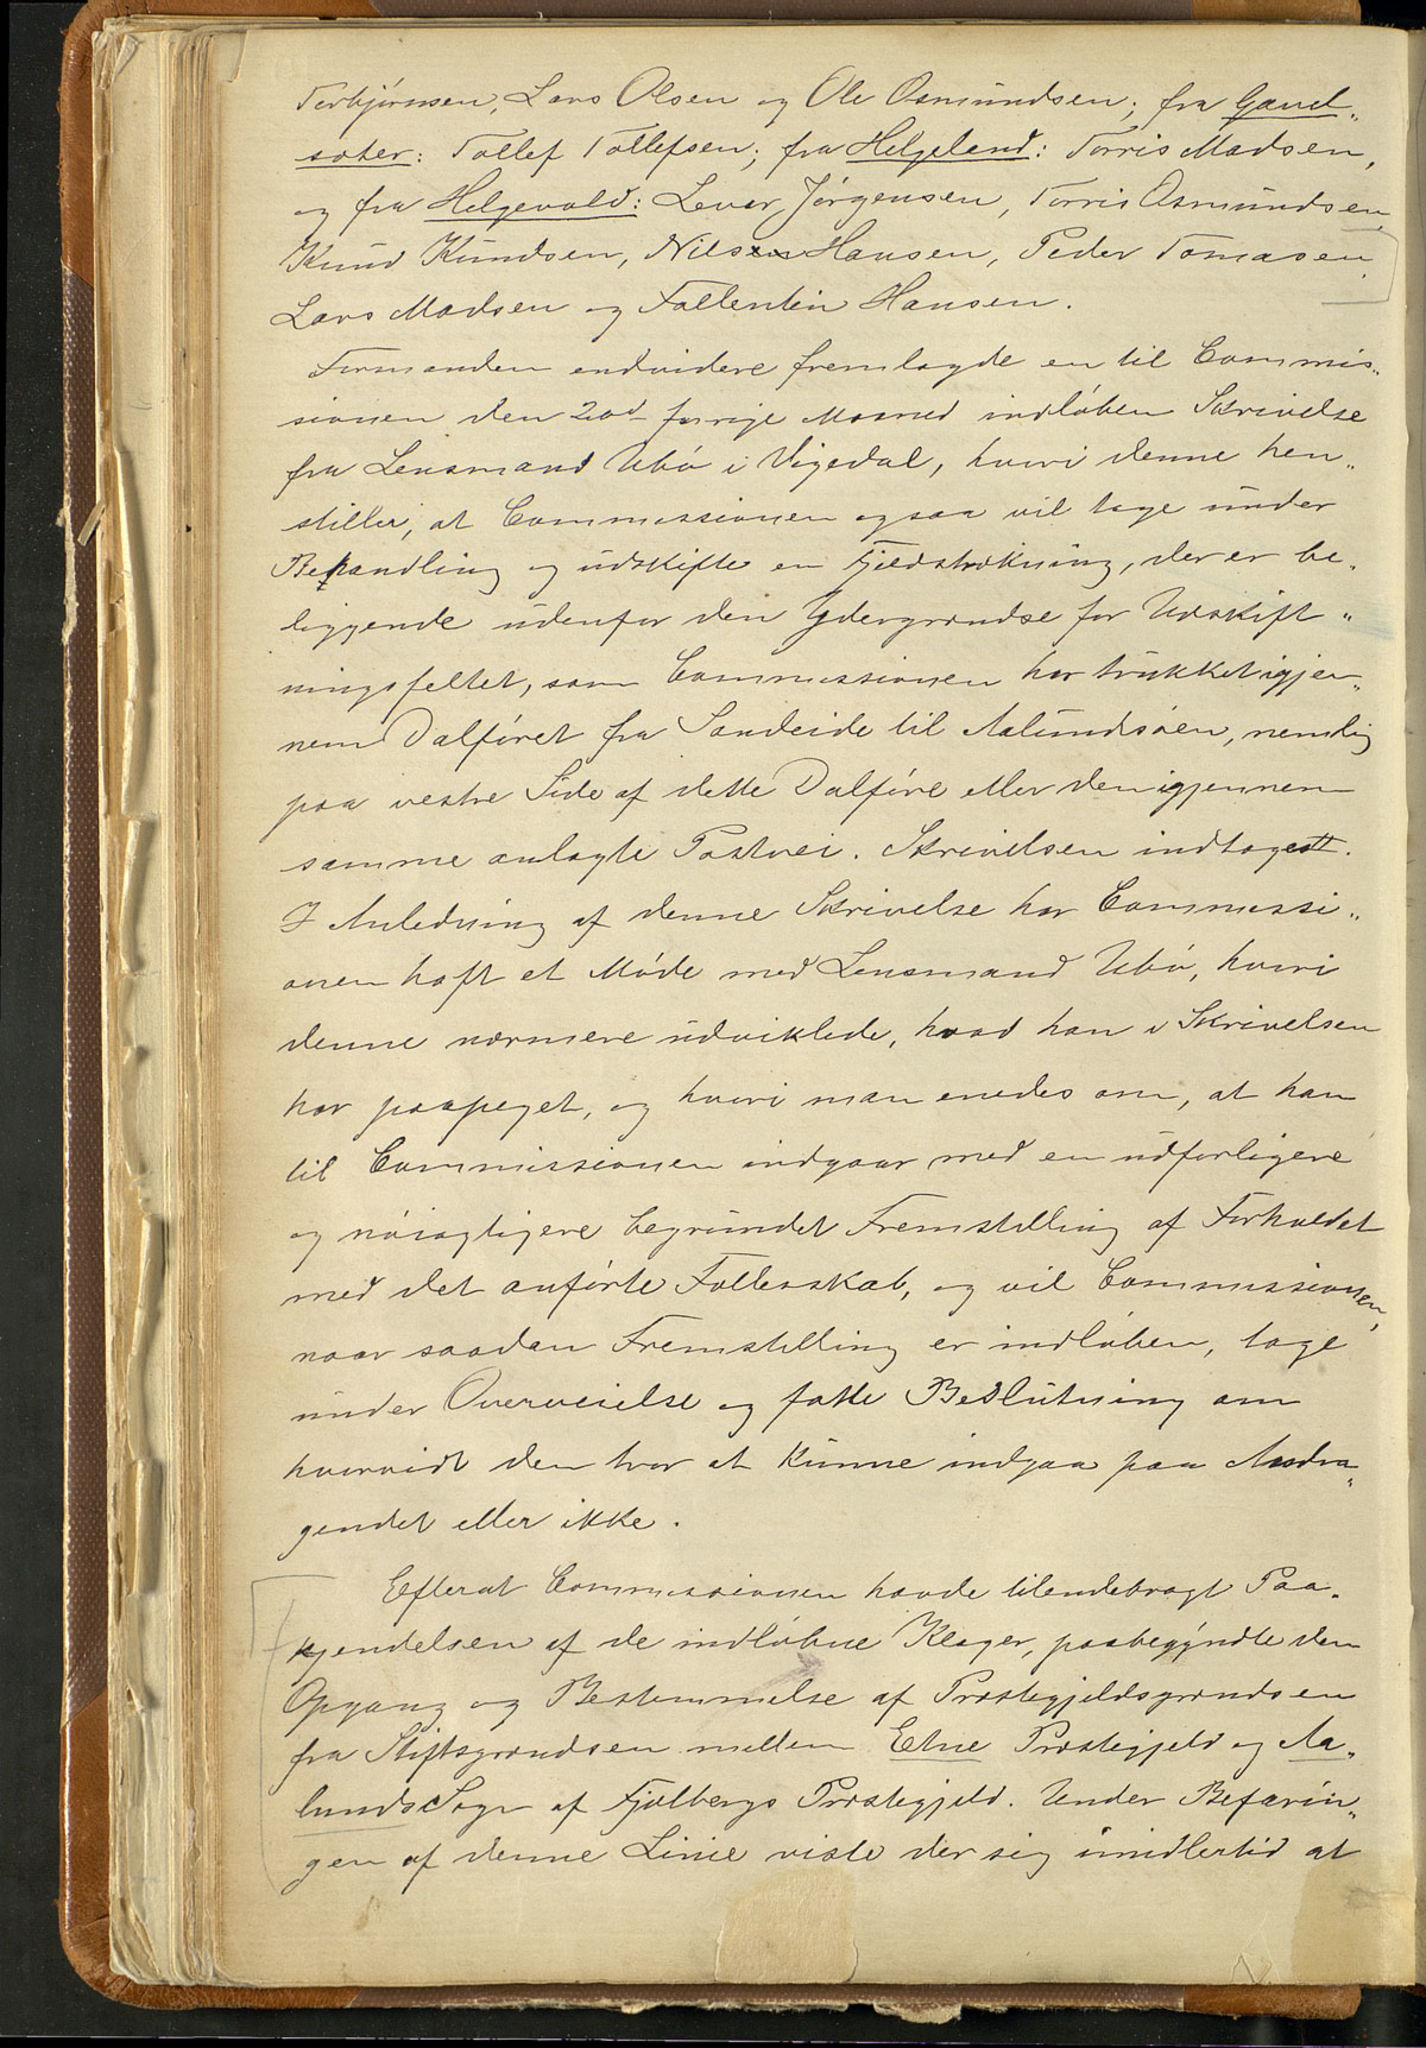 Torbjørnsen, Lars Olsen og Ole Osmundsen; fra Gaud„
sæter: Tollef Tollefsen; fra Helgeland: Torris Madsen,
og fra Helgevold: Lever Jørgensen, Torris Osmundsen,
Knud Knudsen, Nilsen Hansen, Peder Tomasen,
Lars Madsen og Fallentin Hansen.
Formanden endvidere fremlagde en til Commis„
sionen den 20d forrige Maaned indløben Skrivelse
fra Lensmand Ubø i Vigedal, hvori denne hen„
stiller, at Commissionen ogsaa vil tage under
Behandling og udskifte en Fjeldstrækning, der er be„
liggende udenfor den Ydergrændse for Udskift„
ningsfeltet, som Commissionen har trukket igjen„
nem Dalføret fra Sandeide til Aalundsøen, nemlig
paa vestre Side af dette Dalføre eller den igjennem
samme anlagte Postvei. Skrivelsen indtages.
I Anledning af denne Skrivelse har Commissi„
onen haft et Møde med Lensmand Ubø, hvori
denne nærmere udviklede, hvad han i Skrivelsen
har paapeget, og hvori man enedes om, at han
til Commissionen indgaar med en udførligere
og nøiagtigere begrundet Fremstilling af Forholdet
med det anførte Fællesskab, og vil Commissionen,
naar saadan Fremstilling er indløben, tage
under Overveielse og fatte Beslutning om
hvorvidt den tror at kunne indgaa paa Andra„
gendet eller ikke.
Efterat Commissionen havde tilendebragt Paa„
kjendelsen af de indløbne Klager, paabegyndte den
Opgang og Bestemmelse af Præstegjeldsgrændsen
fra Stiftsgrændsen mellem Etne Præstegjeld og Aa„
lunds Sogn af Fjelbergs Præstegjeld. Under Befarin„
gen af denne Linie viste der sig imidlertid at